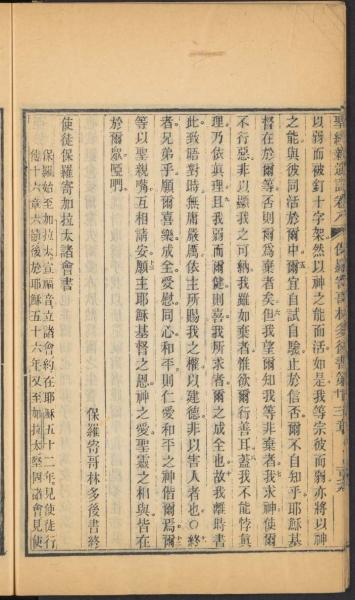 聖經新遺詔卷八 保羅寄哥林多後書第十三章
以弱而被釘十字架然以神之能而活如是我等宗彼而弱亦將以神
之能與彼同活於爾中爾宜自試自驗止於信否爾不自知乎耶穌基
督在於爾等否則爾為棄者矣但我望爾知我等非棄者我求神使爾
不行惡非以顯我之可納我雖如棄者惟欲爾行善耳蓋我不能悖眞
理乃依眞理且我弱而爾健則喜我所求者爾之成全也故我離時書
此致晤對時無庸嚴厲依主所賜我之權以建德非以害人者也○終
者兄弟乎願爾喜樂成全愛慰同心和平則仁愛和平之神偕爾焉爾
等以聖親嘴互相請安願主耶穌基督之恩神之愛聖靈之相與皆在
於爾眾啞們
保羅寄哥林多後書終
使徒保羅寄加拉太諸會書
保羅始至加拉太宣福音立諸會約在耶穌五十二年見使徒行
傳十六章六節後於耶穌五十六年又至加拉太堅固諸會見使